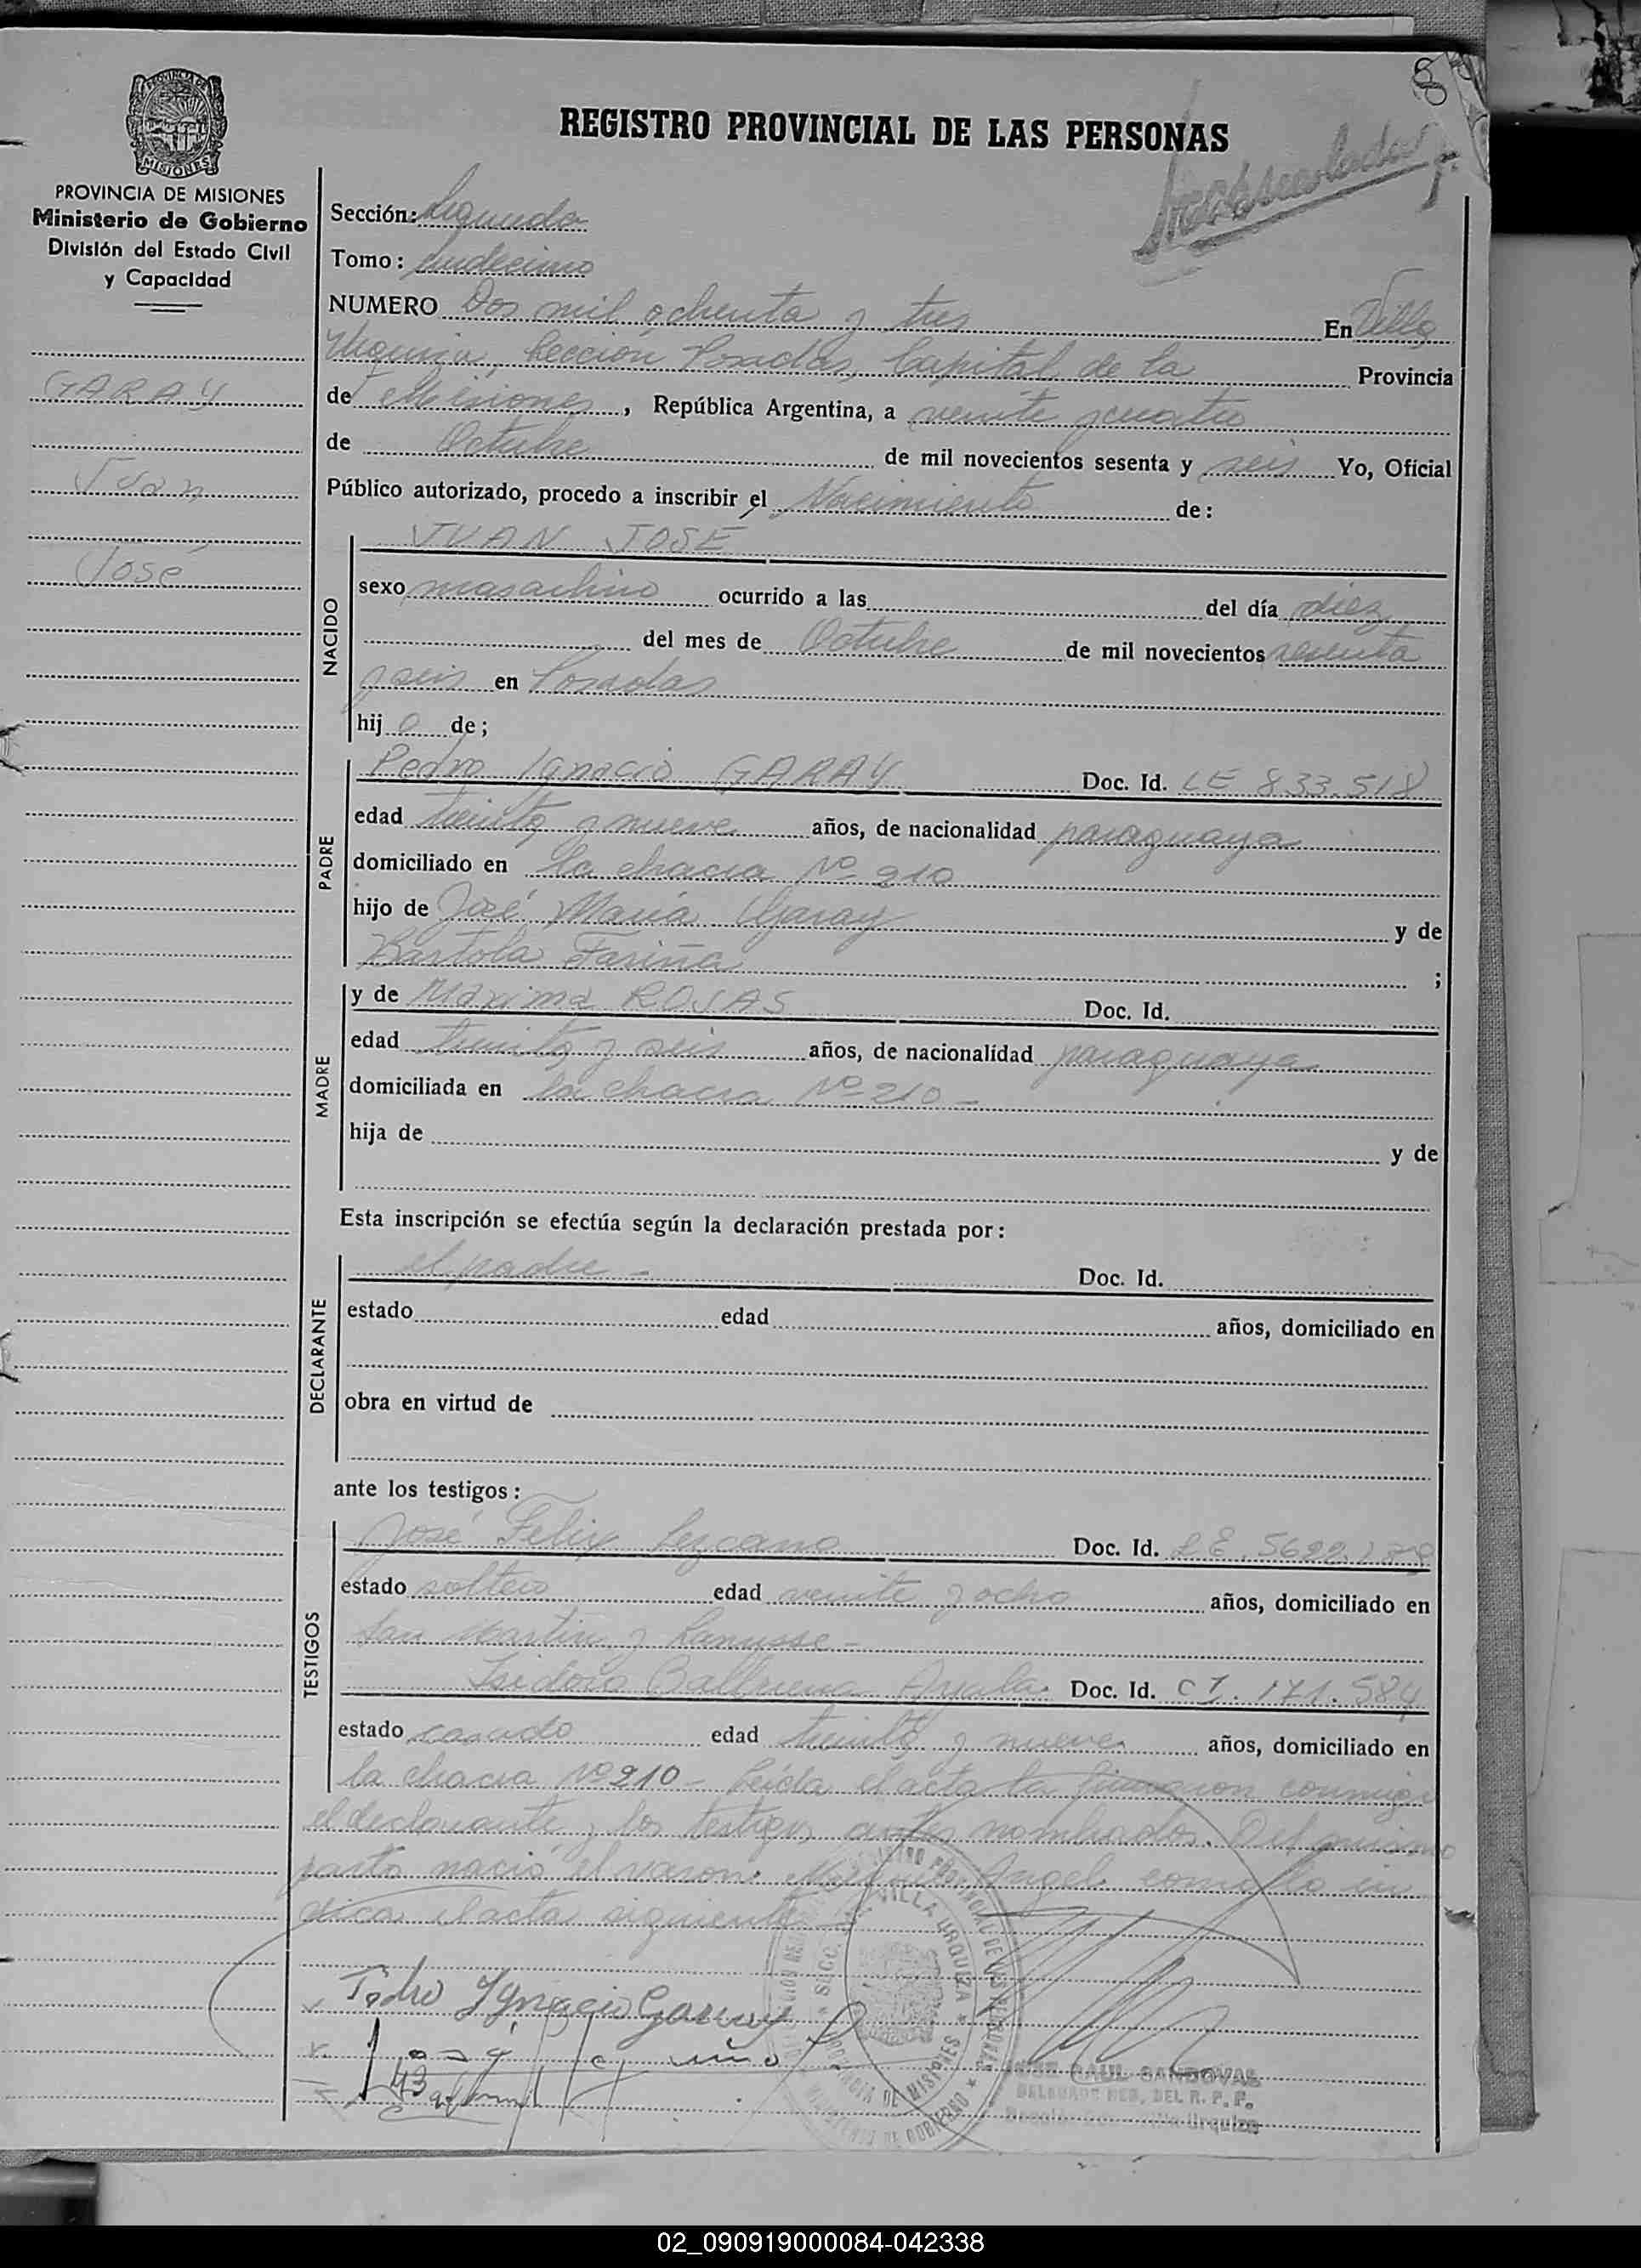 8
REGISTRO PROVINCIAL DE LAS PERSONAS
PROVINCIA DE
MISIONES
PROVINCIA DE MISIONES
Ministerio de Gobierno
División del Estado Civil
y Capacidad
GARAY
Juan
José
Sección: Segunda
Tomo: Undécimo
NUMERO Dos mil ochenta y tres En Villa
Urquiza, Sección Posadas, Capital de la Provincia
de Misiones, República Argentina, a veinte y cuatro
de Octubre de mil novecientos sesenta y seis Yo, Oficial
Público autorizado, procedo a inscribir el Nacimiento de:
NACIDO
JUAN JOSÉ
sexo masculino ocurrido a las del día diez
del mes de Octubre de mil novecientos sesenta
y seis en Posadas
hij o de;
PADRE
Pedro Ignacio GARAY Doc. Id. LE 833.518
edad treinta y nueve años, de nacionalidad paraguaya
domiciliado en la chacra Nº 210
hijo de José María Garay y de
Bartola Fariña ;
MADRE
y de Máxima ROJAS Doc. Id.
edad treinta y seis años, de nacionalidad paraguaya
domiciliada en la chacra Nº 210 -
hija de y de
Esta inscripción se efectúa según la declaración prestada por:
DECLARANTE
el padre - Doc. Id.
estado edad años, domiciliado en
obra en virtud de
ante los testigos:
TESTIGOS
José Felix Lezcano Doc. Id. L.E. 5622.178
estado soltero edad veinte y ocho años, domiciliado en
San Martin y Lanusse -
Isidoro Ayala Doc. Id. CI. 171.584
estado casado edad treinta y nueve años, domiciliado en
la chacra Nº 210 - Leída el acta la firmaron conmigo
el declarante y los testigos antes nombrados. Del mismo
parto nació el varon: Angel como lo in
dica el acta siguiente
Pedro Ignacio Garay
VILLA URQUIZA
PROVINCIA DE MISIONES
MINISTERIO DE GOBIERNO
JOSE RAUL SANDOVAL
DEL R. P. P.
Urquiza
02_090919000084-042338